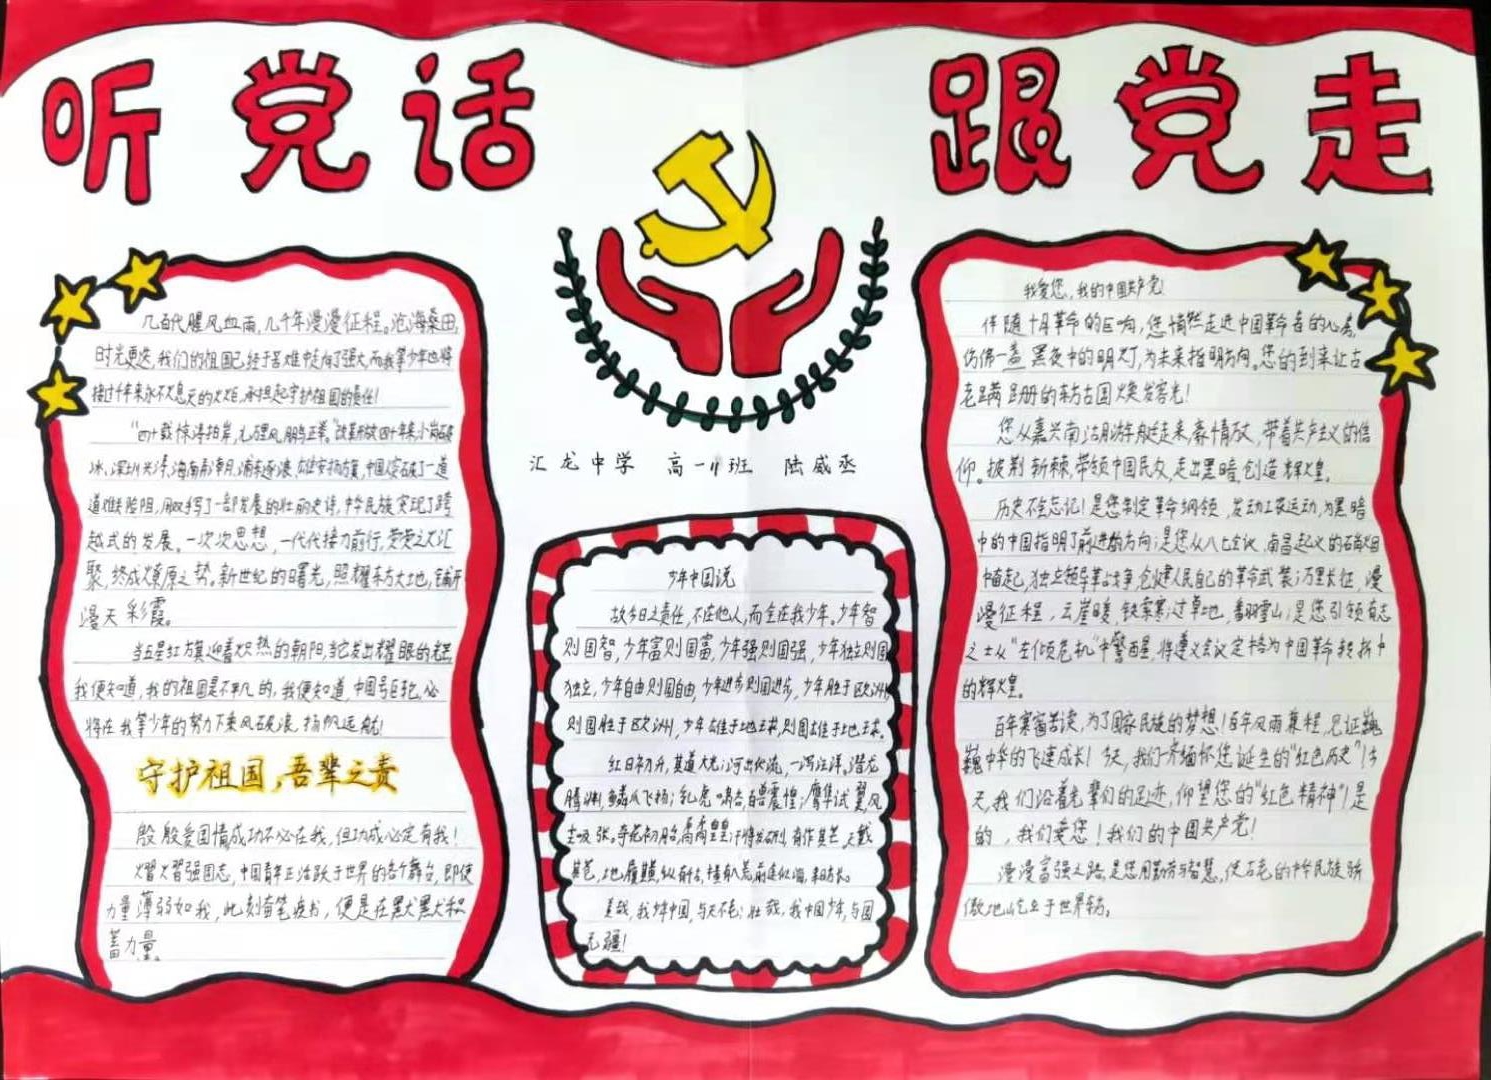 听党话 跟党走
几百代腥风血雨,几千年漫漫征程。沧海桑田,
时光更迭,我们的祖国已经于苦难中走向了强大,而我等少年也将
接过千年来永不熄灭的火炬,承担起守护祖国的责任!
“四十载惊涛拍岸,九万里风鹏正举。”改革开放四十年来,小岗破
冰,深圳兴涛,海南弄潮,浦东逐浪,雄安扬旗,中国突破了一道
道难关险阻,用双手写了一部发展的壮丽史诗,中华民族实现了跨
越式的发展。一次次思想,一代代接力前行,荧荧之火汇
聚,终成燎原之势,新世纪的曙光,照耀东方大地,铺开
漫天彩霞。
当五星红旗迎着炽热的朝阳,当它发出耀眼的光芒
我便知道,我的祖国是不平凡的,我便知道,中国号巨轮,必
将在我等少年的努力下乘风破浪,扬帆远航!
守护祖国,吾辈之责
殷殷爱国情成功不必在我,但功成必定有我!
熠熠强国志,中国青年正活跃于世界的各个舞台,即使
力量薄弱如我,此刻奋笔疾书,便是在默默积
蓄力量。
汇龙中学 高一11班 陆威丞
少年中国说
故今日之责任,不在他人,而全在我少年。少年智
则国智,少年富则国富,少年强则国强,少年独立则国
独立,少年自由则国自由,少年进步则国进步,少年胜于欧洲,
则国胜于欧洲,少年雄于地球,则国雄于地球。
红日初升,其道大光;河出伏流,一泻汪洋。潜龙
腾渊,鳞爪飞扬;乳虎啸谷,百兽震惶;鹰隼试翼,风
尘吸张。奇花初胎,矞矞皇皇;干将发硎,有作其芒。天戴
其苍,地履其黄,纵有千古,横有八荒,前途似海,来日方长。
美哉,我少年中国,与天不老;壮哉,我中国少年,与国
无疆!
我爱您,我的中国共产党!
伴随十月革命的巨响,您悄然走进中国革命者的心房,
仿佛一盏黑夜中的明灯,为未来指明方向。您的到来让古
老蹒跚的东方古国焕发容光!
您从嘉兴南湖游船走来,豪情万丈,带着共产主义的信
仰。披荆斩棘,带领中国民众,走出黑暗,创造辉煌。
历史不会忘记!是您制定革命纲领,发动工农运动,为黑暗
中的中国指明了前进的方向;是您从八七会议,南昌起义的硝烟
中奋起,独立领导革命战争,创建人民自己的革命武装;万里长征,漫
漫征程,云崖暖,铁索寒;过草地,翻雪山;是您引领有志
之士从“左倾危机”中警醒,将遵义会议定格为中国革命转折中
的辉煌。
百年寒窗苦读,为了国家民族的梦想!百年风雨兼程,见证巍
巍中华的飞速成长!今天,我们齐缅怀您诞生的“红色历史”!今
天,我们沿着先辈们的足迹,仰望您的“红色精神”!是
的,我们爱您!我们的中国共产党!
漫漫富强之路,是您用勤劳与智慧,使古老的中华民族骄
傲地屹立于世界东方。